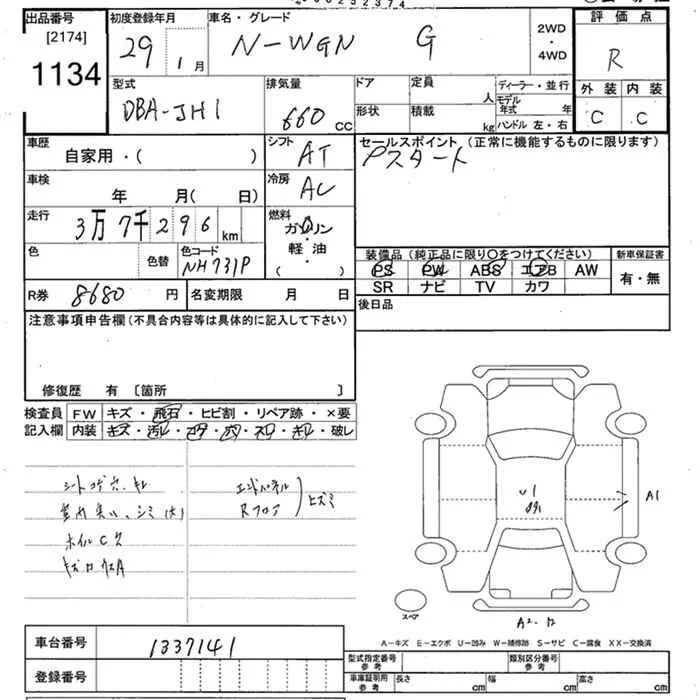 出品番号
[2174]
1134
初度登録年月
29 年 1 月
車名・グレード
N-WGN G
2WD
・
4WD
評価点
R
外装 内装
C C
型式
DBA-JH1
排気量
660 cc
ドア
定員
人
形状
積載
kg
ディーラー・並行
モデル年式 年
ハンドル 左・右
車歴
自家用・( )
シフト
AT
セールスポイント (正常に機能するものに限ります)
Pスタート
車検
年 月( 日)
冷房
AC
走行
3万7千296km
燃料
ガソリン
軽・油
・
( )
色
色替
色コード
NH731P
装備品(純正品に限り○をつけてください)
PS PW ABS エアB AW
SR ナビ TV カワ
新車保証書
有・無
R券 8680 円
名変期限 月 日
後日品
注意事項申告欄(不具合内容等は具体的に記入して下さい)
修復歴 有 〔箇所 〕
検査員 FW キズ・飛石・ヒビ割・リペア跡・×要
記入欄 内装 キズ・汚レ・コゲ・穴・スレ・キレ・破レ
シートコゲ穴、キレ
室内臭い、シミ(大)
ホイルCク
エンドパネル
Rフロア
ヒズミ
U1
A1
スペア
A-キズ E-エクボ U-凹み W-補修跡 S-サビ C-腐食 XX-交換済
車台番号 1337141
登録番号
型式指定番号
参考
類別区分番号
参考
車庫証明用
参考
長さ cm
幅 cm
高さ cm